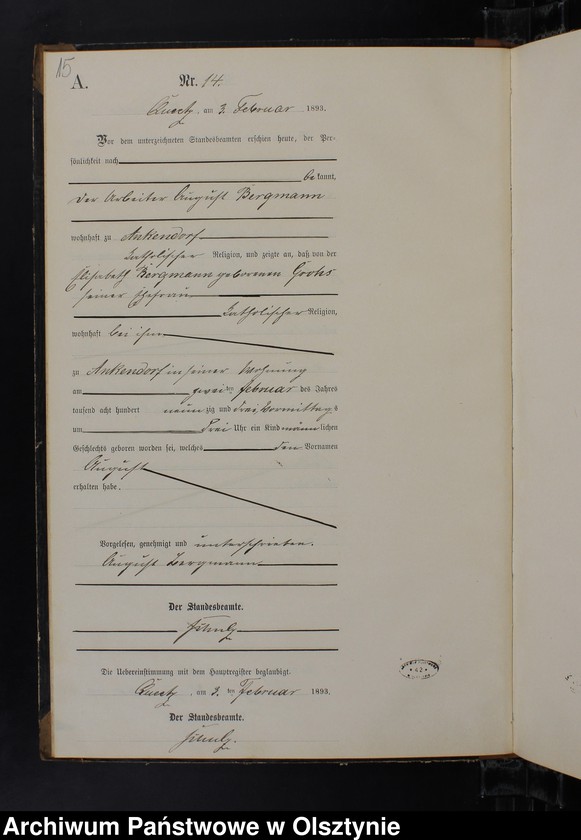 15
A.
Nr. 14.
Queetz, am 3. Februar 1893.
Vor dem unterzeichneten Standesbeamten erschien heute, der Per-
sönlichkeit nach
bekannt,
der Arbeiter August Bergmann
wohnhaft zu Ankendorf
katholischer Religion, und zeigte an, daß von der
Elisabeth Bergmann geborenen Grohs
seiner Ehefrau
katholischer Religion,
wohnhaft bei ihm
zu Ankendorf in seiner Wohnung
am zweiten Februar des Jahres
tausend acht hundert neunzig und drei Vormittags
um drei Uhr ein Kind männlichen
Geschlechts geboren worden sei, welches den Vornamen
August
erhalten habe.
Vorgelesen, genehmigt und unterschrieben.
August Bergmann
Der Standesbeamte.
Die Uebereinstimmung mit dem Hauptregister beglaubigt.
Queetz, am 3. ten Februar 1893.
Der Standesbeamte.
42
Archiwum Państwowe w Olsztynie